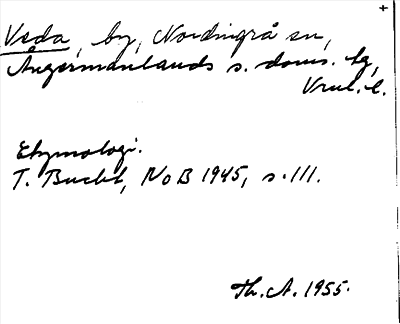 Veda, by, Nordingrå sn,
Ångermanlands s. doms. tg,
Vnrl. l.
Etymologi.
T. Bucht, NoB 1945, s. 111.
Th. A. 1955.